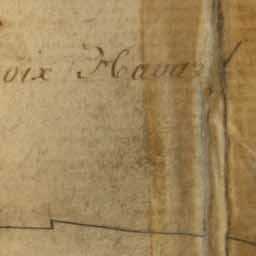 oix Havar